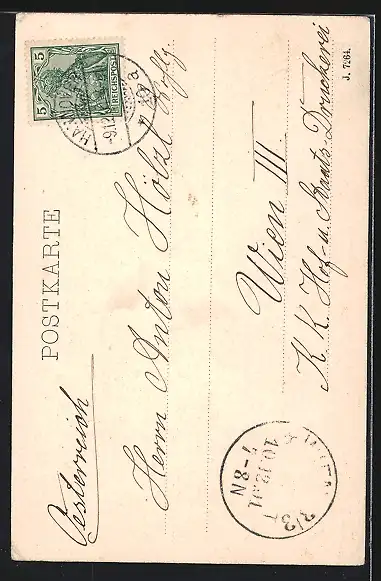 POSTKARTE
5 5
REICHSPOST
HANNOVER
9.12
Oesterreich
Herrn Anton Hölzl
Wien III.
K. K. Hof- u. Staats-Druckerei
J. 7264.
WIEN 3/3
10.12.01
7-8N